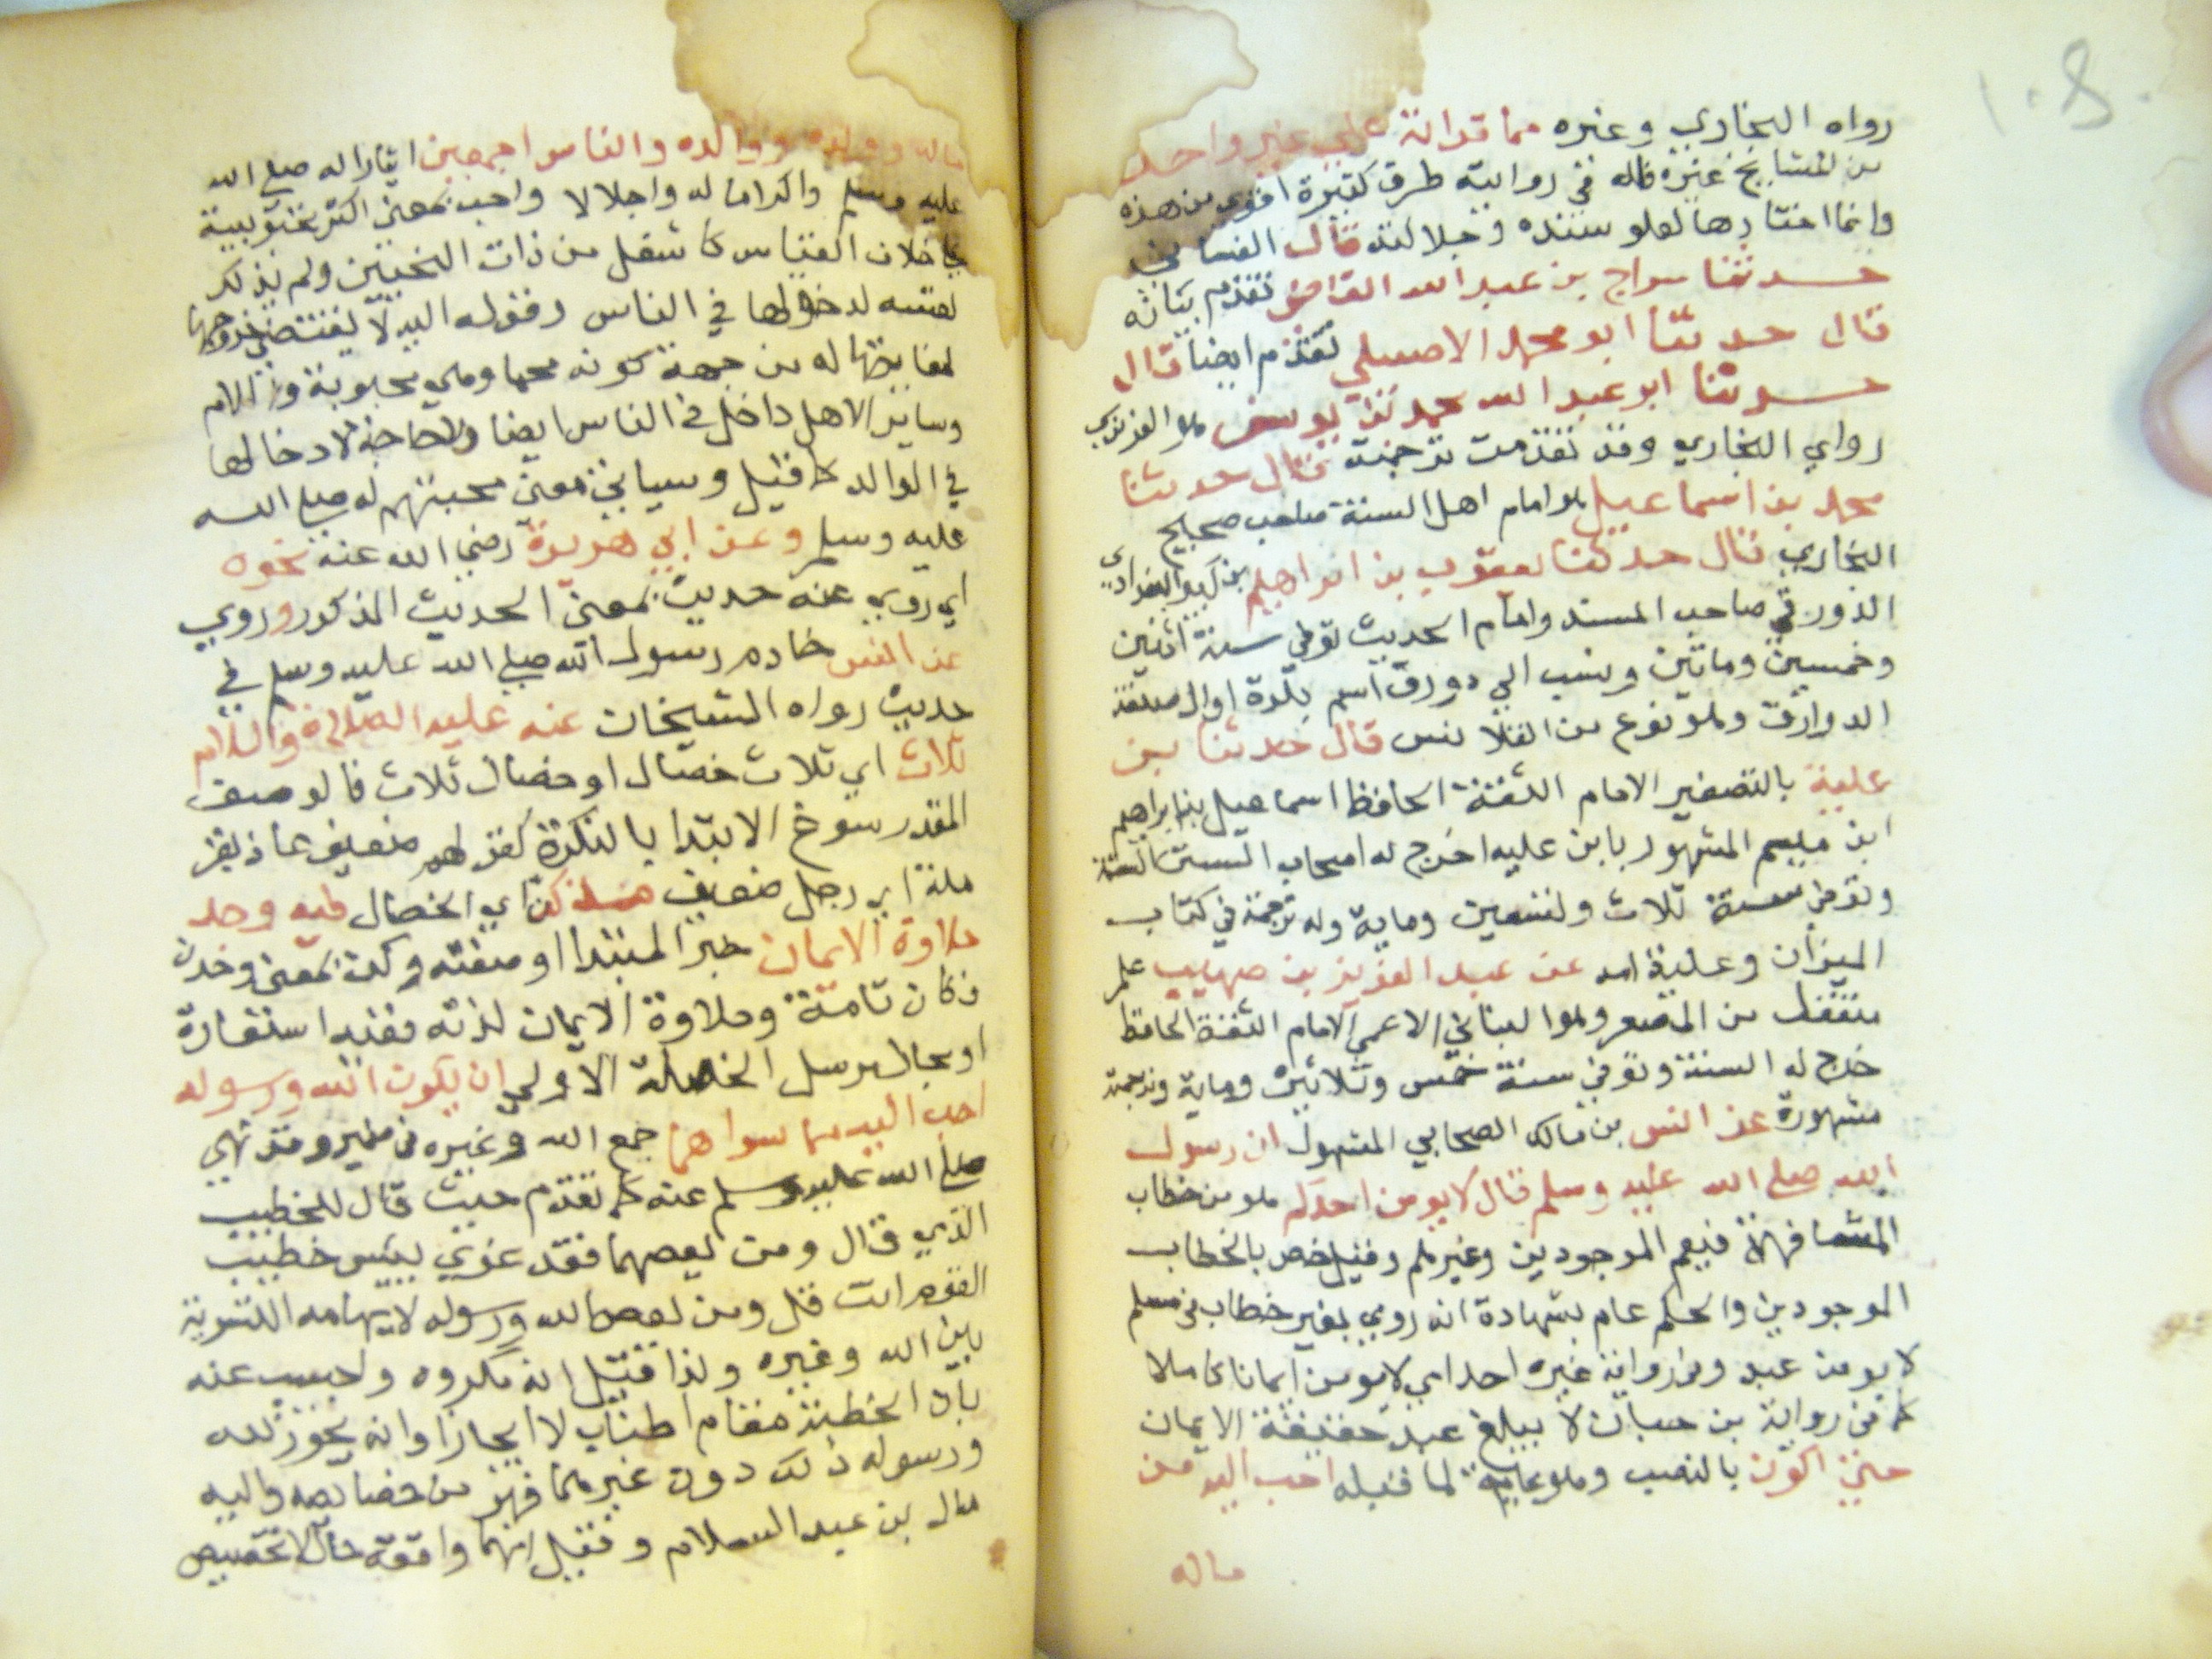 ١٠٨
رواه البخاري وغيره مما قراته علي غير واحد
من المشايخ غيره فله في روايته طرق كثيرة اقوي من هذه
وانما اختارها لعلو سنده وجلالته قال الغساني
حدثنا سراج بن عبد الله القاضي تقدم بيانه
قال حدثنا ابو محمد الاصيلي تقدم ايضا قال
حدثنا ابو عبد الله محمد بن يوسف هو الفربري
راوي البخاري وقد تقدمت ترجمته قال حدثنا
محمد بن اسماعيل هو امام اهل السنة صاحب صحيح
البخاري قال حدثنا يعقوب بن ابراهيم بن كثير البغدادي
الدورقي صاحب المسند وامام الحديث توفي سنة اثنين
وخمسين وماتين ونسب الي دورق اسم بلدة او
الدوارق وهو نوع من القلانس قال حدثنا بن
علية بالتصغير الامام الثقة الحافظ اسماعيل بن ابراهيم
ابن مقسم المشهور بابن عليه اخرج له اصحاب الستة
وتوفي سنة ثلاث وتسعين وماية وله ترجمة في كتاب
الميزان وعلية امه عن عبد العزيز بن صهيب علم
منقول من المصغر وهو البناني الاعمي الامام الثقة الحافظ
خرج له الستة وتوفي سنة خمس وثلاثين وماية وترجمته
مشهورة عن انس بن مالك الصحابي المشهول ان رسول
الله صلي الله عليه وسلم قال لا يومن احدكم هو من خطاب
المشافهة فيعم الموجودين وغيرهم وقيل خص بالخطاب
الموجودين والحكم عام بشهادة انه روي بغير خطاب في مسلم
لا يومن عبد وفي رواية غيره احد اي لا يومن ايمانا كاملا
كما في رواية بن حبان لا يبلغ عبد حقيقة الايمان
حتي اكون بالنصب وهو غاية لما قبله احب اليه من
ماله
ماله وولده ووالده والناس اجمعين ايثارا له صلي الله
عليه وسلم واكراما له واجلالا واحب بمعني اكثر محبوبية
علي خلاف القياس كاشغل من ذات النحيين ولم يذكر
نفسه لدخولها في الناس وقوله اليه لا يقتضي خروجها
لمغايرتها له من جهة كونه محبا وهي محبوبة والام
وساير الاهل داخل في الناس ايضا ولا حاجة لادخالها
في الوالد كما قيل وسياتي معني محبتهم له صلي الله
عليه وسلم وعن ابي هريرة رضي الله عنه نحوه
اي روي عنه حديث بمعني الحديث المذكور وروي
عن انس خادم رسول الله صلي الله عليه وسلم في
حديث رواه الشيخان عنه عليه الصلاة والسلام
ثلاث اي ثلاث خصال او خصال ثلاث فالوصف
المقدر سوغ الابتدا بالنكرة كقولهم ضعيف عاذ بقر
ملة اي رجل ضعيف من كن اي الخصال فيه وجد
حلاوة الايمان خبر المبتدا او صفته وكن بمعني وجدن
فكان تامة وحلاوة الايمان لذته ففيه استعارة
او مجاز مرسل الخصلة الاولي ان يكون الله ورسوله
احب اليه مما سواهما جمع الله وغيره في ضمير وقد نهي
صلي الله عليه وسلم عنه كما تقدم حيث قال للخطيب
الذي قال ومن يعصهما فقد غوي بيس خطيب
القوم انت قل ومن يعص الله ورسوله لايهامه التسوية
بين الله وغيره ولذا قيل انه مكروه واجيب عنه
بان الخطبة مقام اطناب لا ايجاز وانه يجوز لله
ورسوله ذلك دون غيرهما فهو من خصايصه واليه
مال بن عبد السلام وقيل انها واقعة حال لا تخصيص